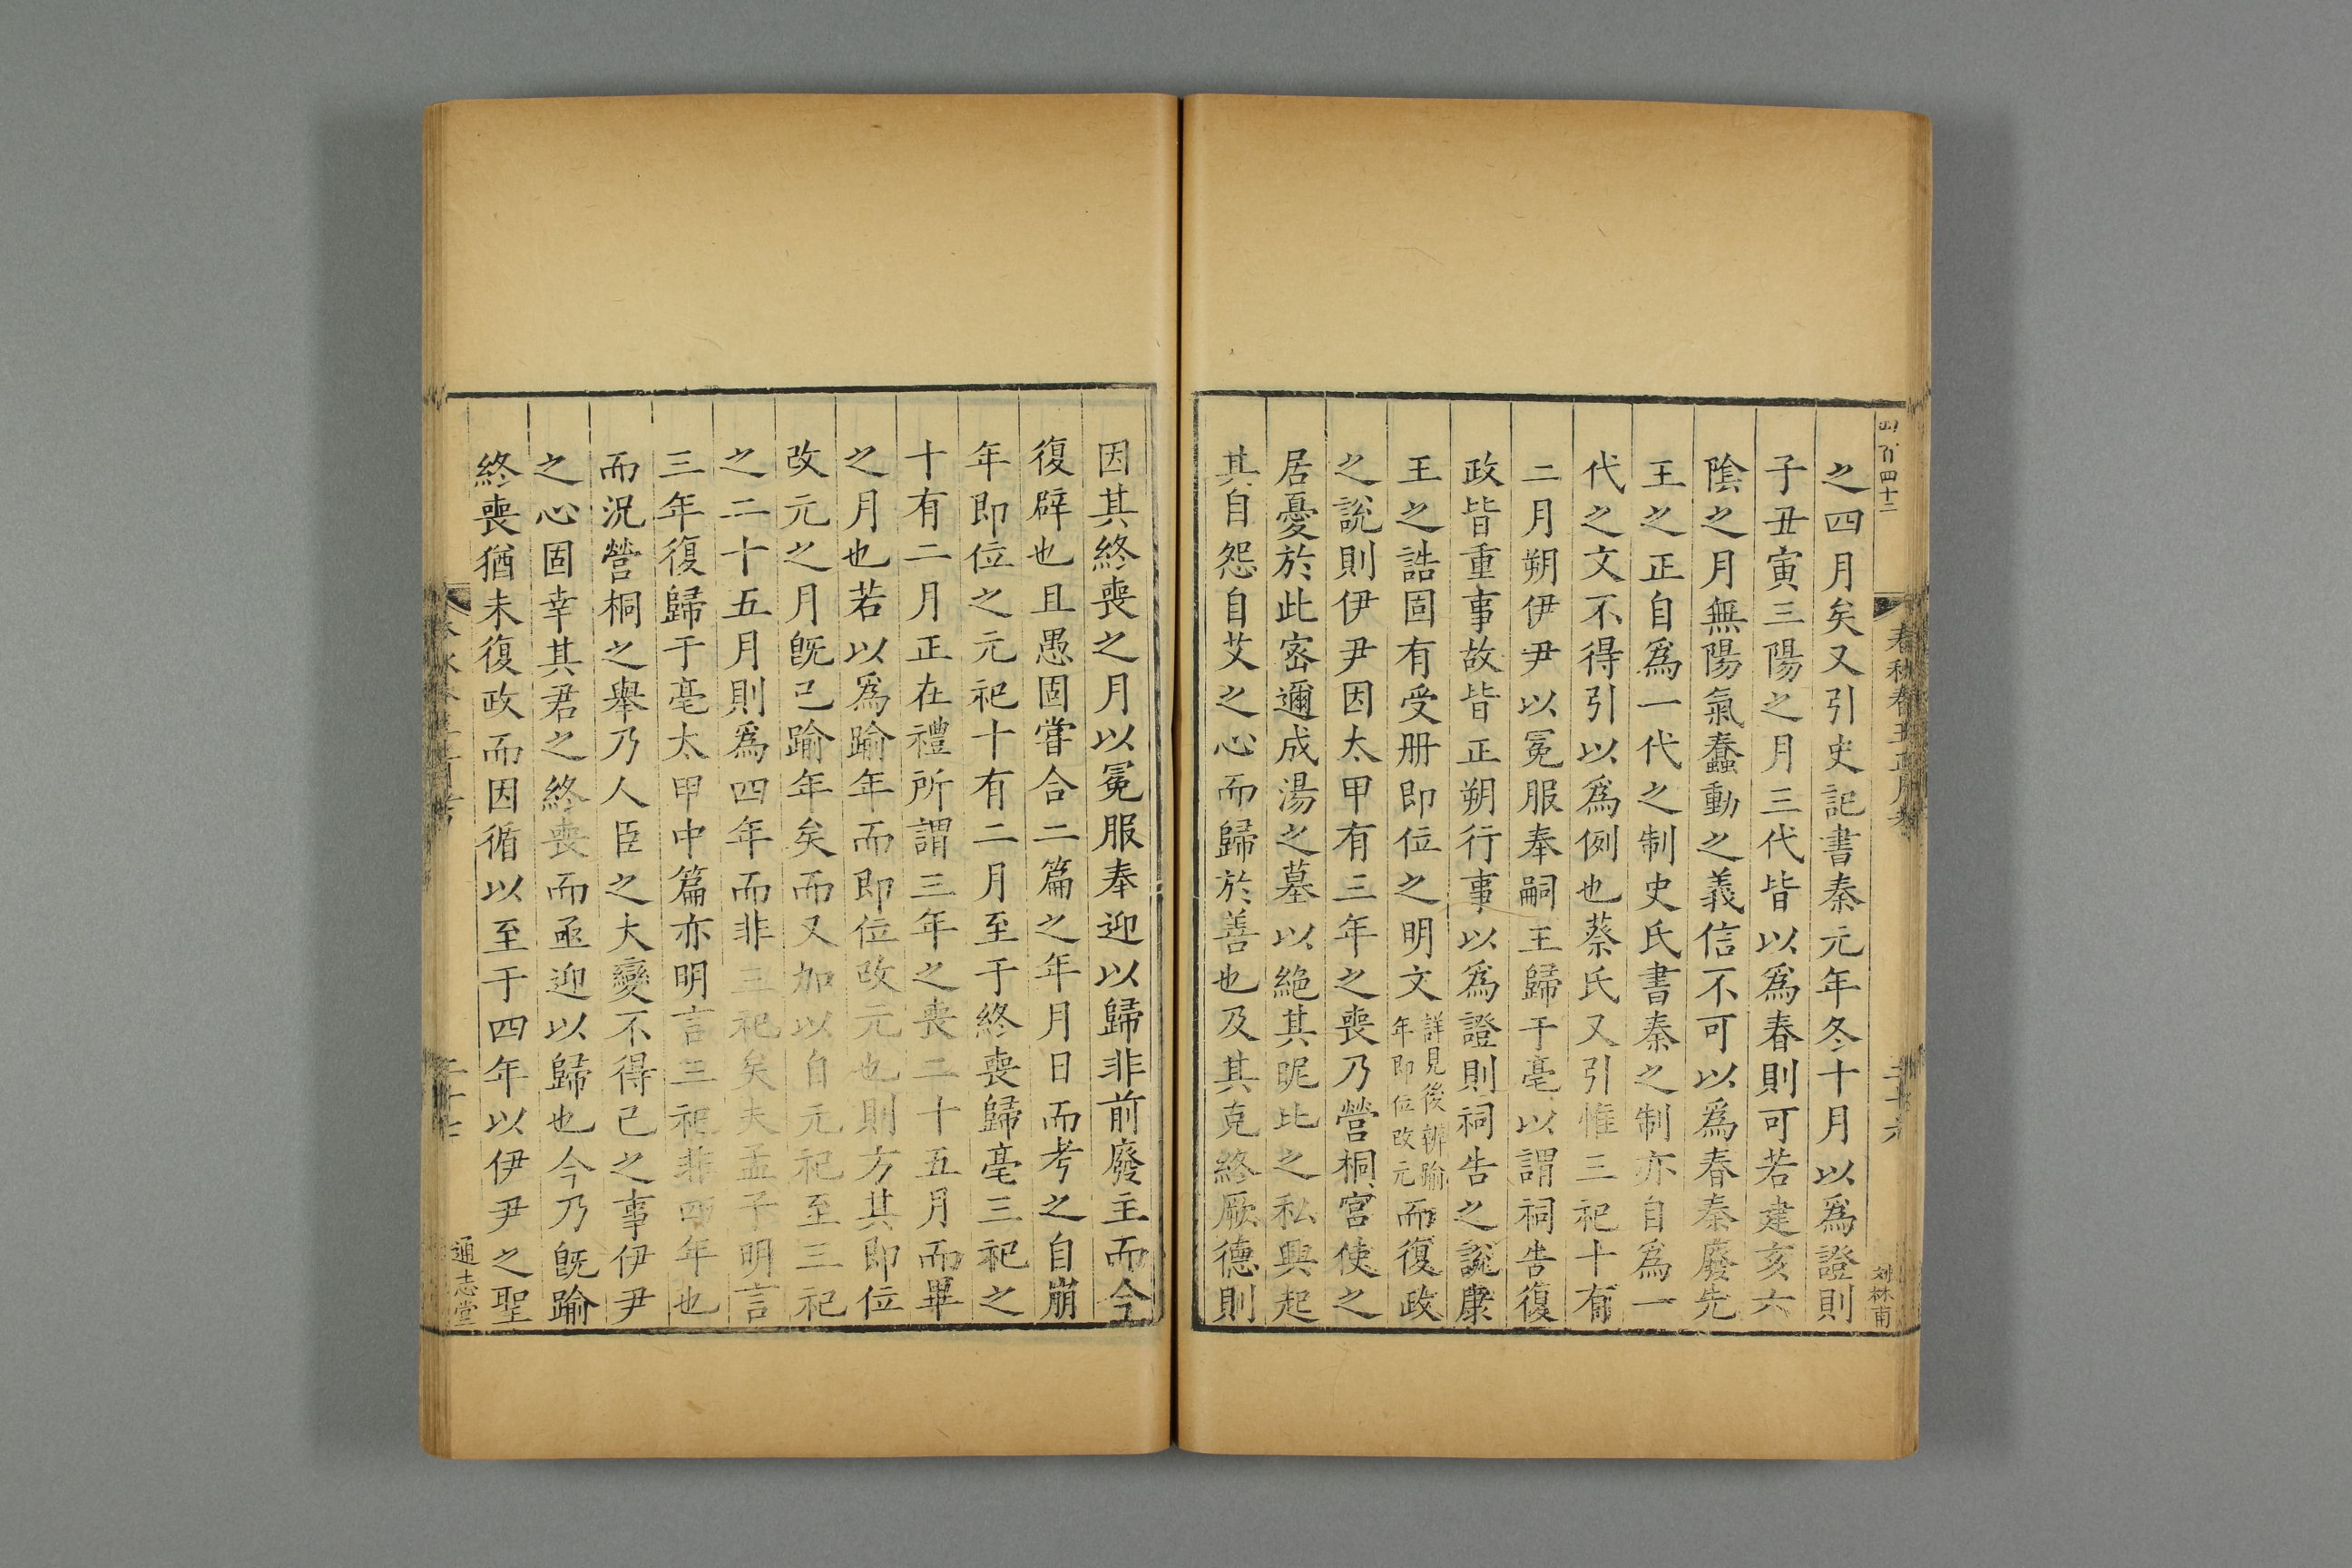 四百四十三
春秋春王正月考
二十六
刘林甫
之四月矣又引史記書秦元年冬十月以爲證則
子丑寅三陽之月三代皆以爲春則可若建亥六
陰之月無陽氣蠢動之義信不可以爲春秦廢先
王之正自爲一代之制史氏書秦之制亦自爲一
代之文不得引以爲例也蔡氏又引惟三祀十有
二月朔伊尹以冕服奉嗣王歸于亳以謂祠告復
政皆重事故皆正朔行事以爲證則祠告之說康
王之誥固有受册即位之明文詳見後辨踰年即位改元而復政
之說則伊尹因太甲有三年之喪乃營桐宮使之
居憂於此密邇成湯之墓以絶其昵比之私興起
其自怨自艾之心而歸於善也及其克終厥德則
因其終喪之月以冕服奉迎以歸非前廢主而今
復辟也且愚固嘗合二篇之年月日而考之自崩
年即位之元祀十有二月至于終喪歸亳三祀之
十有二月正在禮所謂三年之喪二十五月而畢
之月也若以爲踰年而即位改元也則方其即位
改元之月旣已踰年矣而又加以自元祀至三祀
之二十五月則爲四年而非三祀矣夫孟子明言
三年復歸于亳太甲中篇亦明言三祀非四年也
而況營桐之舉乃人臣之大變不得已之事伊尹
之心固幸其君之終喪而亟迎以歸也今乃旣踰
終喪猶未復政而因循以至于四年以伊尹之聖
二十七
通志堂